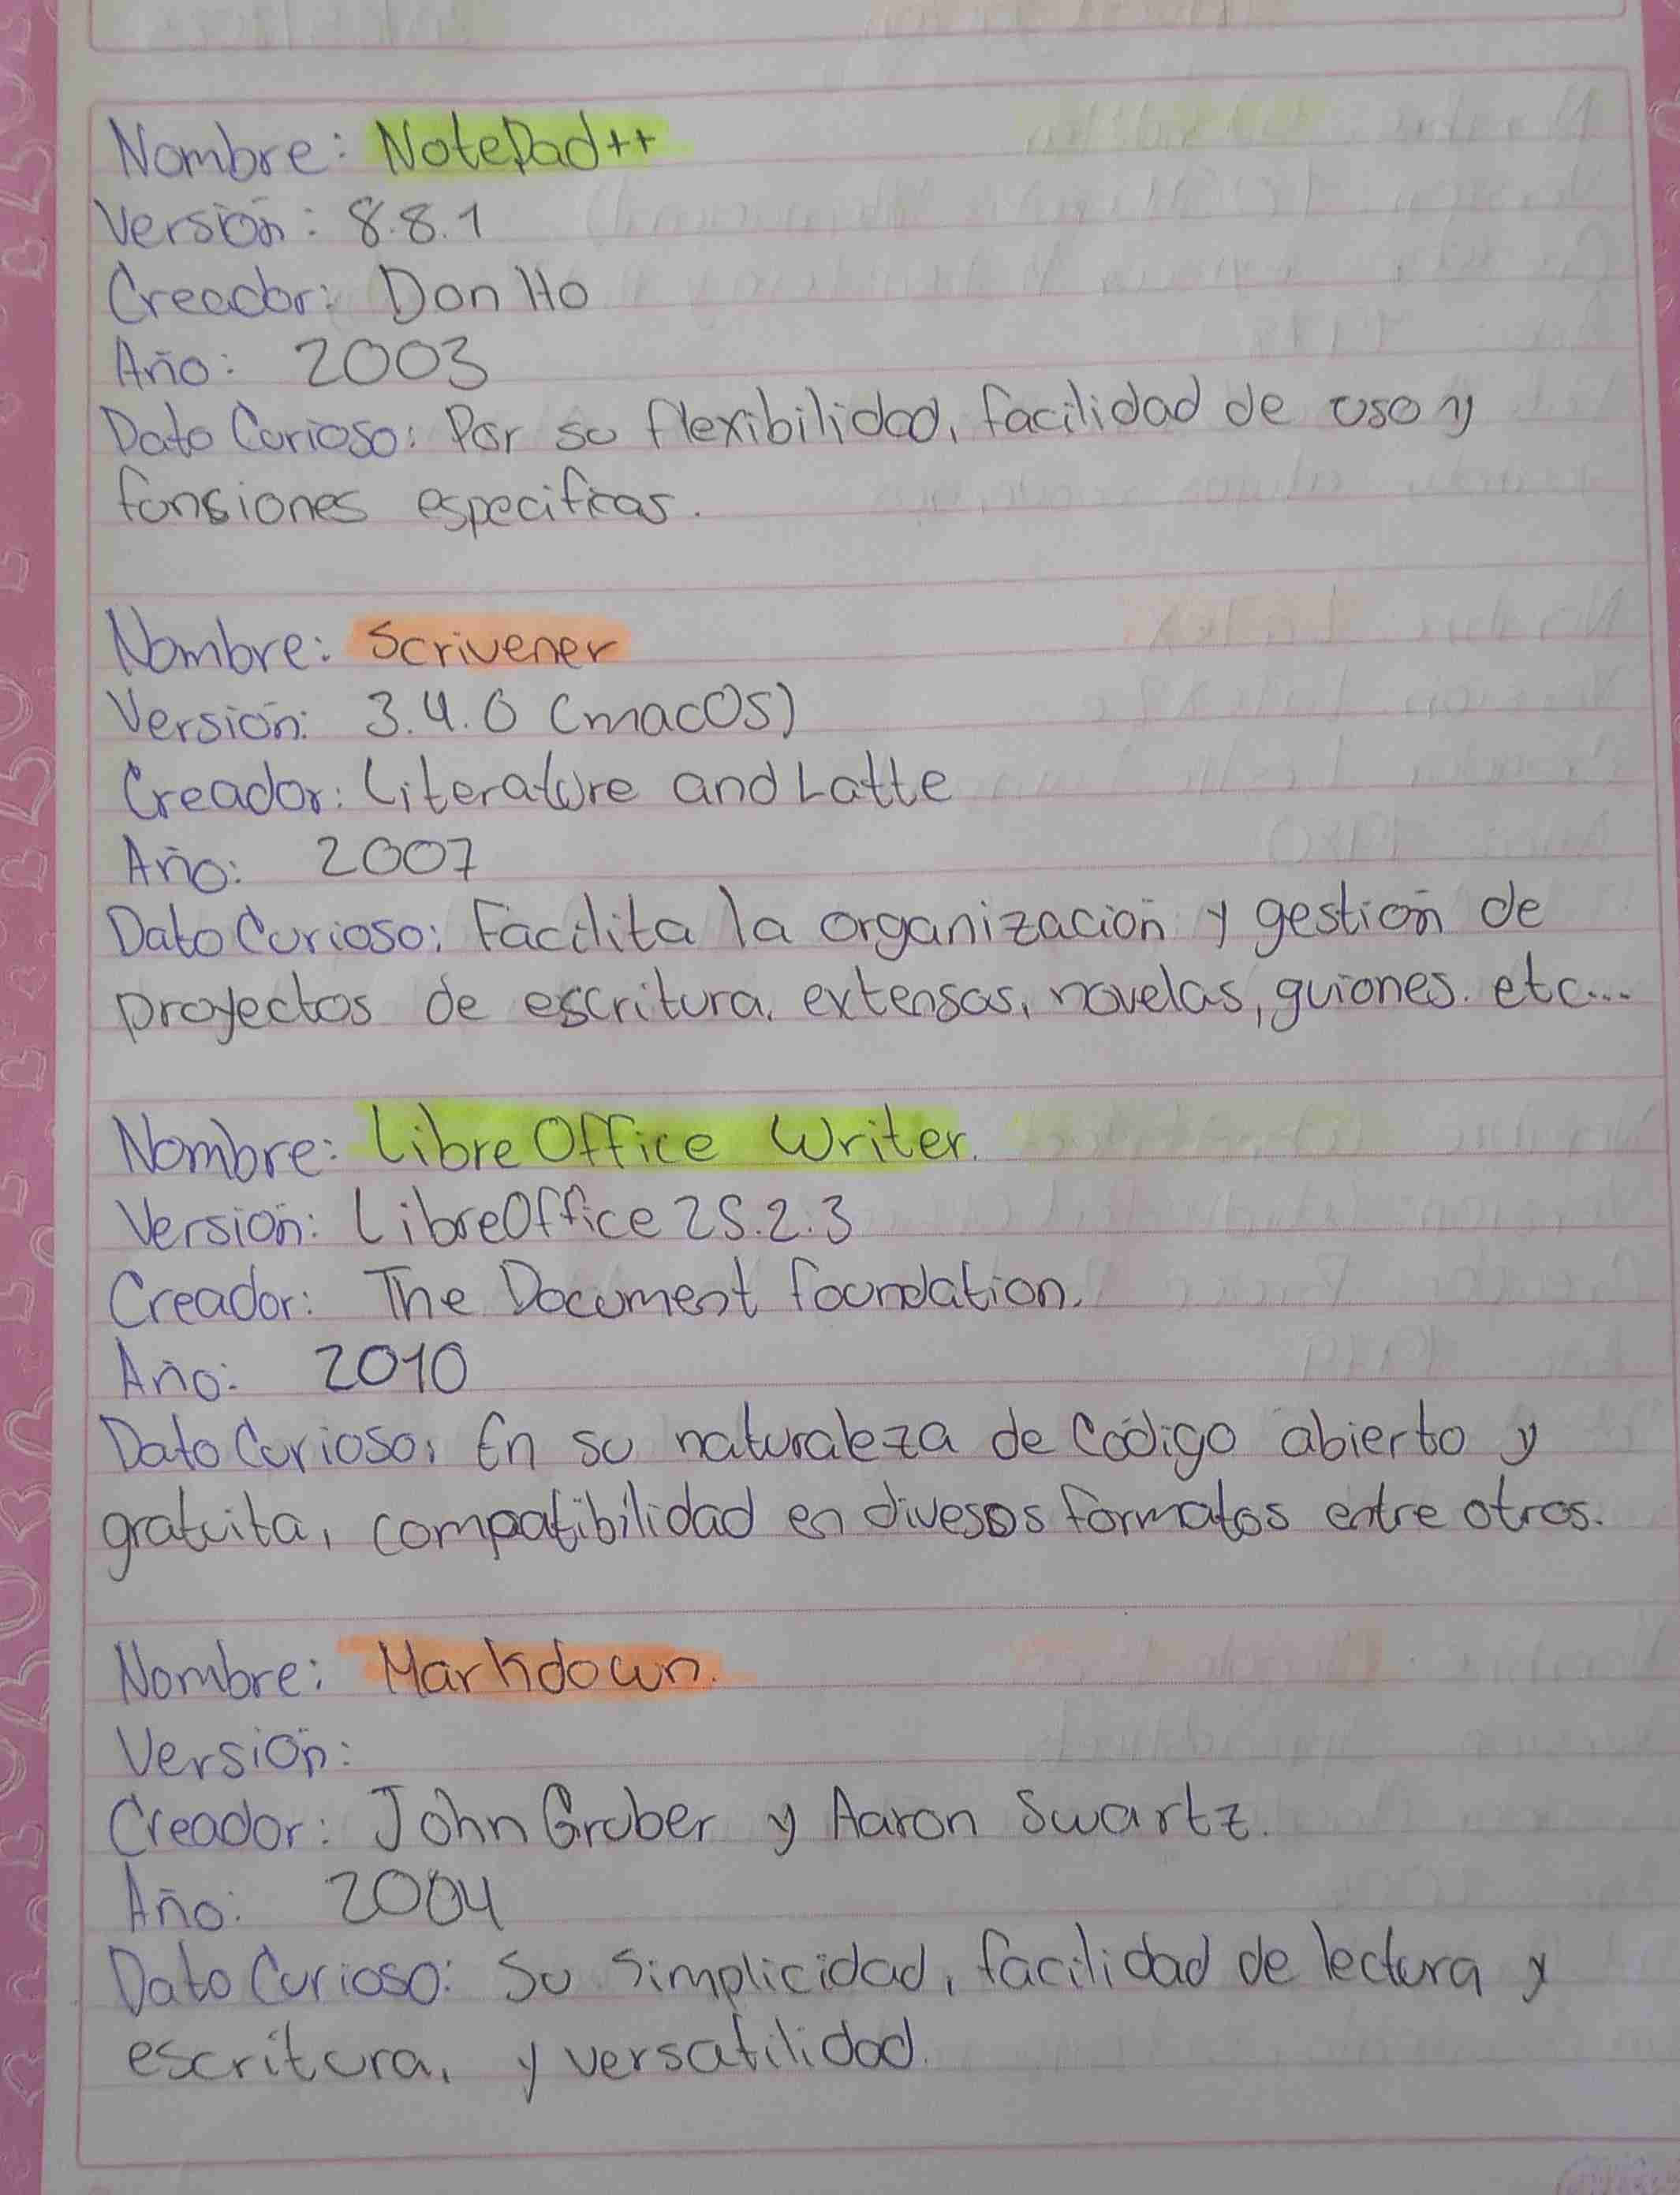 Nombre: NotePad++
Versión: 8.8.1
Creador: Don Ho
Año: 2003
Dato Curioso: Por su flexibilidad, facilidad de uso y
funsiones especificas.
Nombre: Scrivener
Versión: 3.4.0 (macOS)
Creador: Literature and Latte
Año: 2007
Dato Curioso: Facilita la organización y gestión de
proyectos de escritura, extensas, novelas, guiones. etc...
Nombre: Libre Office Writer.
Versión: LibreOffice 25.2.3
Creador: The Document foundation.
Año: 2010
Dato Curioso: En su naturaleza de Código abierto y
gratuita, compatibilidad en divesos formatos entre otros.
Nombre: Markdown.
Versión:
Creador: John Gruber y Aaron Swartz.
Año: 2004
Dato Curioso: Su simplicidad, facilidad de lectura y
escritura, y versatilidad.